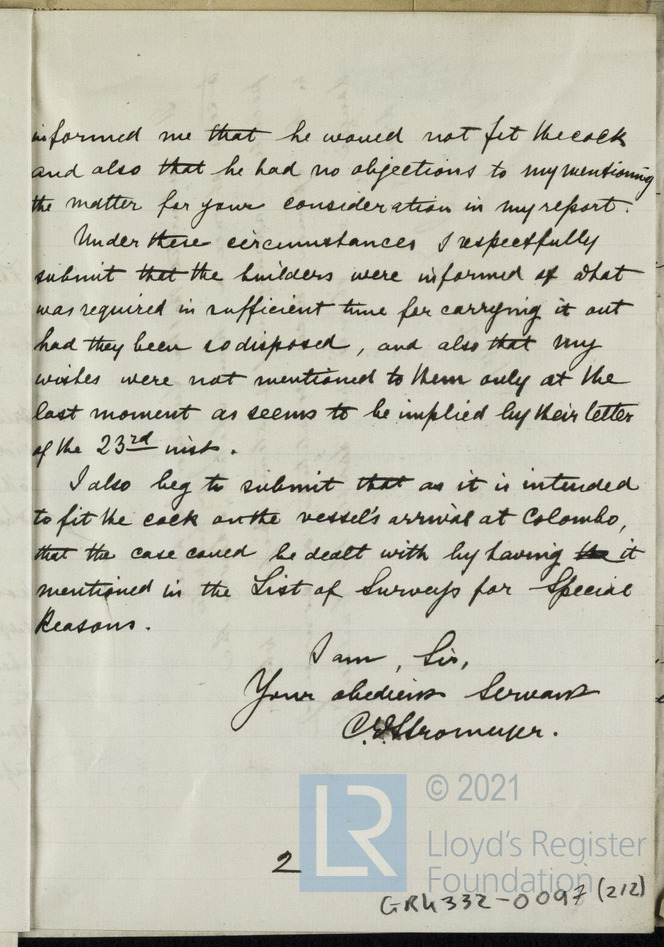 informed me that he would not fit the cock
and also that he had no objections to my mentioning
the matter for your consideration in my report.
Under these circumstances I respectfully
submit that the builders were informed of what
was required in sufficient time for carrying it out
had they been so disposed, and also that my
wishes were not mentioned to them only at the
last moment as seems to be implied by their letter
of the 23rd inst.
I also beg to submit that as it is intended
to fit the cock on the vessel's arrival at Colombo,
that the case could be dealt with by having the it
mentioned in the List of Surveys for Special
Reasons.
I am, Sir,
Your obedient Servant
C.E. Stromeyer.
© 2021
LR
Lloyd's Register
Foundation
2
GRK332-0097 (2/2)